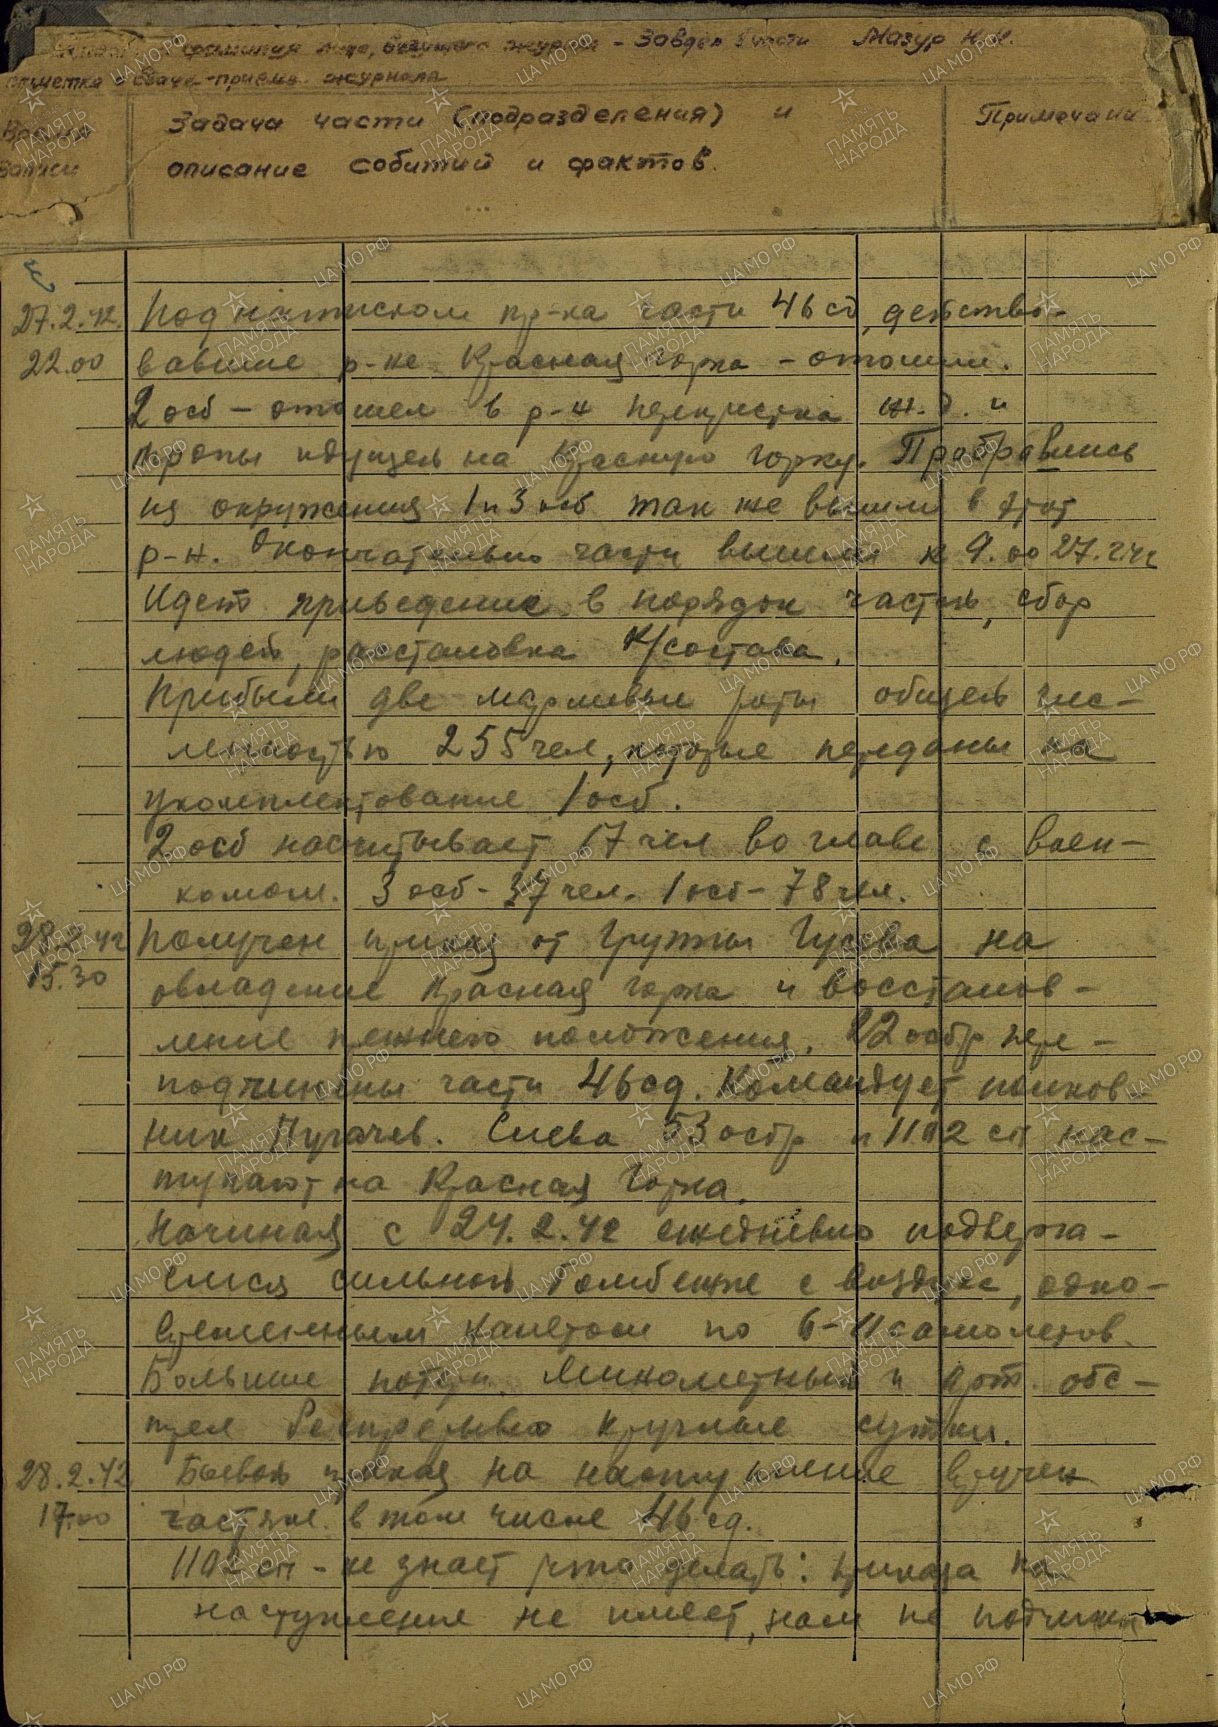 фамилия лица, ведущего журнал - Завдел части Мазур Н.И.
отметка о сдаче-приеме журнала
Время
записи
Задача части (подразделения) и
описание событий и фактов.
Примечани
27.2.42.
22.00
Под натиском пр-ка части 46 сд, действо-
вавшие р-не Красная горка - отошли.
2 осб - отошел в р-н перекрестка ж.д. и
тропы идущей на Красную горку. Пробравшись
из окружения 1 и 3 осб так же вышли в этот
р-н. Окончательно части вышли к 9.00 27.2.42
Идет приведение в порядок частей, сбор
людей, расстановка к/состава.
Прибыли две маршевые роты общей чис-
ленностью 255 чел, которые переданы на
укомплектование 1 осб.
2 осб насчитывает 17 чел во главе с воен-
комом. 3 осб - 37 чел. 1 осб - 78 чел.
28.2.42
15.30
Получен приказ от Группы Гусева на
овладение Красная горка и восстанов-
ление прежнего положения. 22 осбр пере-
подчинены части 46 сд. Командует полков-
ник Пугачев. Слева 53 осбр и 1102 сп нас-
тупают на Красная Горка.
Начиная с 24.2.42 ежедневно подверга-
емся сильной бомбежке с воздуха, одно-
временным налетом по 6-11 самолетов.
Большие потери. Минометный и Арт. обс-
трел беспрерывно круглые сутки.
28.2.42
17.00
Боевой приказ на наступление вручен
частям. в том числе 46 сд.
1102 сп - не знает что делать: приказа на
наступление не имеет, нам не подчинен
ПАМЯТЬ НАРОДА
ЦАМО.РФ